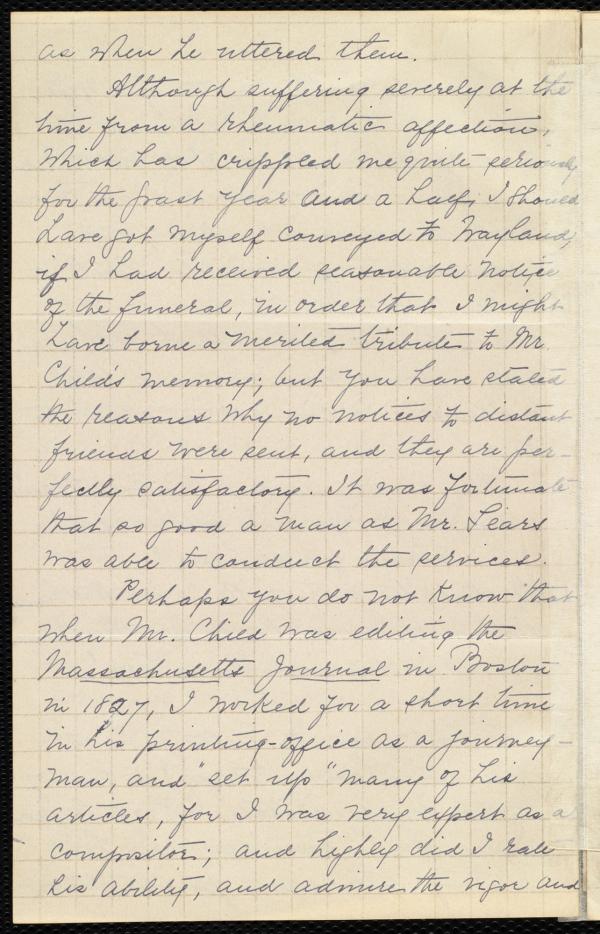 as when he uttered them.
Although suffering severely at the
time from a rheumatic affection,
which has crippled me quite seriously
for the past year and a half, I should
have got myself conveyed to Wayland,
if I had received seasonable notice
of the funeral, in order that I might
have borne a merited tribute to Mr.
Child's memory; but you have stated
the reasons why no notices to distant
friends were sent, and they are per-
fectly satisfactory. It was fortunate
that so good a man as Mr. Sears
was able to conduct the services.
Perhaps you do not know that
when Mr. Child was editing the
Massachusetts Journal in Boston
in 1827, I worked for a short time
in his printing-office as a journey-
man, and "set up" many of his
articles, for I was very expert as a
compositor; and highly did I rate
his ability, and admire the vigor and